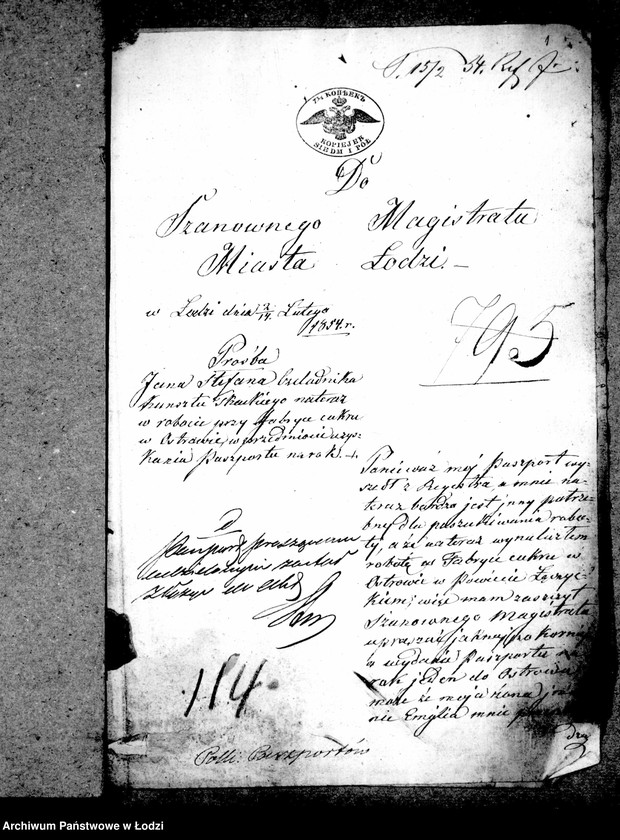 15/2 54.
7½ КОПѢЕКЪ
KOPIEJEK
SIEDM I PÓŁ
Do
Szanownego Magistratu
Miasta Łodzi. —
w Łodzi dnia 2/14 Lutego
1854 r.
795
Prośba
Jana Stefana czeladnika
kunsztu tkackiego na teraz
w robocie przy Fabryce cukru
w Ostrowie, w przedmiocie uzys-
kania Paszportu na rok. —
Ponieważ mój Paszport wy-
szedł z Rejestra a mnie na
teraz bardzo jest inny potrze-
bny dla poszukiwania robo-
ty, a że na teraz wynalazłem
robotę w Fabryce cukru w
Ostrowie w Powiecie Łęczyc-
kiem; więc mam zaszczyt
Szanownego Magistratu
upraszać jaknajpokorniej
o wydanie Paszportu na
rok jeden do Ostrowa
może że moja żona
Emilia mnie
Paszport proszącemu
udzielonym został
184.
Paszportów
Archiwum Państwowe w Łodzi